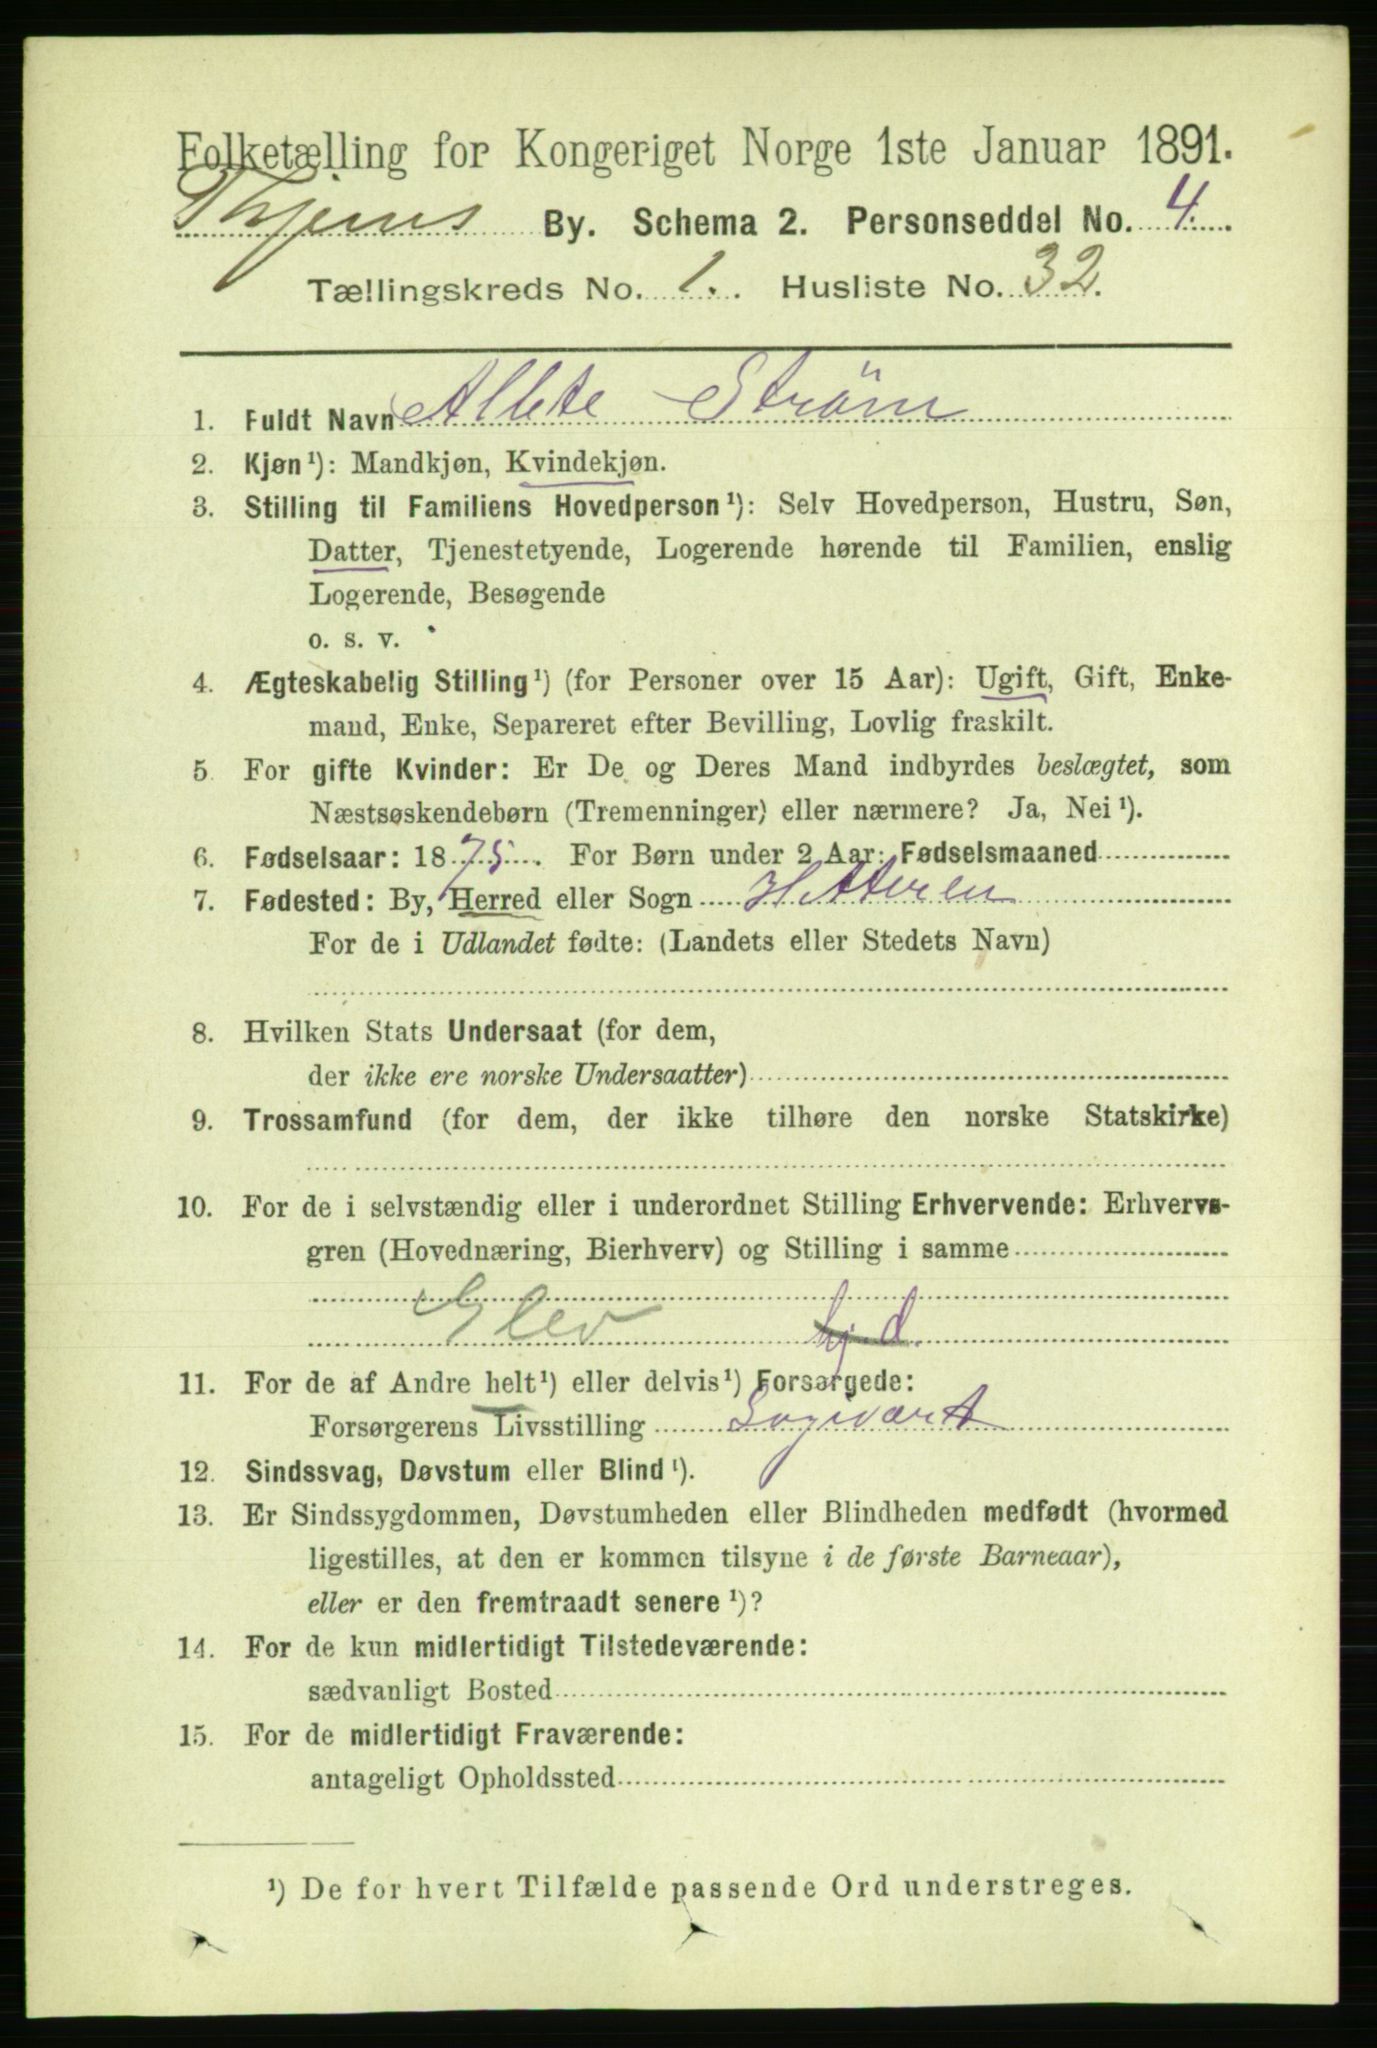 Folketælling for Kongeriget Norge 1ste Januar 1891.
Thjems By. Schema 2. Personseddel No. 4.
Tællingskreds No. 1. Husliste No. 32.
1. Fuldt Navn Albte Strøm
2. Kjøn¹): Mandkjøn, Kvindekjøn.
3. Stilling til Familiens Hovedperson¹): Selv Hovedperson, Hustru, Søn,
Datter, Tjenestetyende, Logerende hørende til Familien, enslig
Logerende, Besøgende
o. s. v.
4. Ægteskabelig Stilling¹) (for Personer over 15 Aar): Ugift, Gift, Enke-
mand, Enke, Separeret efter Bevilling, Lovlig fraskilt.
5. For gifte Kvinder: Er De og Deres Mand indbyrdes beslægtet, som
Næstsøskendebørn (Tremenninger) eller nærmere? Ja, Nei¹).
6. Fødselsaar: 1875. For Børn under 2 Aar: Fødselsmaaned
7. Fødested: By, Herred eller Sogn Hitteren
For de i Udlandet fødte: (Landets eller Stedets Navn)
8. Hvilken Stats Undersaat (for dem,
der ikke ere norske Undersaatter)
9. Trossamfund (for dem, der ikke tilhøre den norske Statskirke)
10. For de i selvstændig eller i underordnet Stilling Erhvervende: Erhvervs-
gren (Hovednæring, Bierhverv) og Stilling i samme
Elev hj. d.
11. For de af Andre helt¹) eller delvis¹) Forsørgede:
Forsørgerens Livsstilling
12. Sindssvag, Døvstum eller Blind¹).
13. Er Sindssygdommen, Døvstumheden eller Blindheden medfødt (hvormed
ligestilles, at den er kommen tilsyne i de første Barneaar),
eller er den fremtraadt senere¹)?
14. For de kun midlertidigt Tilstedeværende:
sædvanligt Bosted
15. For de midlertidigt Fraværende:
antageligt Opholdssted
¹) De for hvert Tilfælde passende Ord understreges.